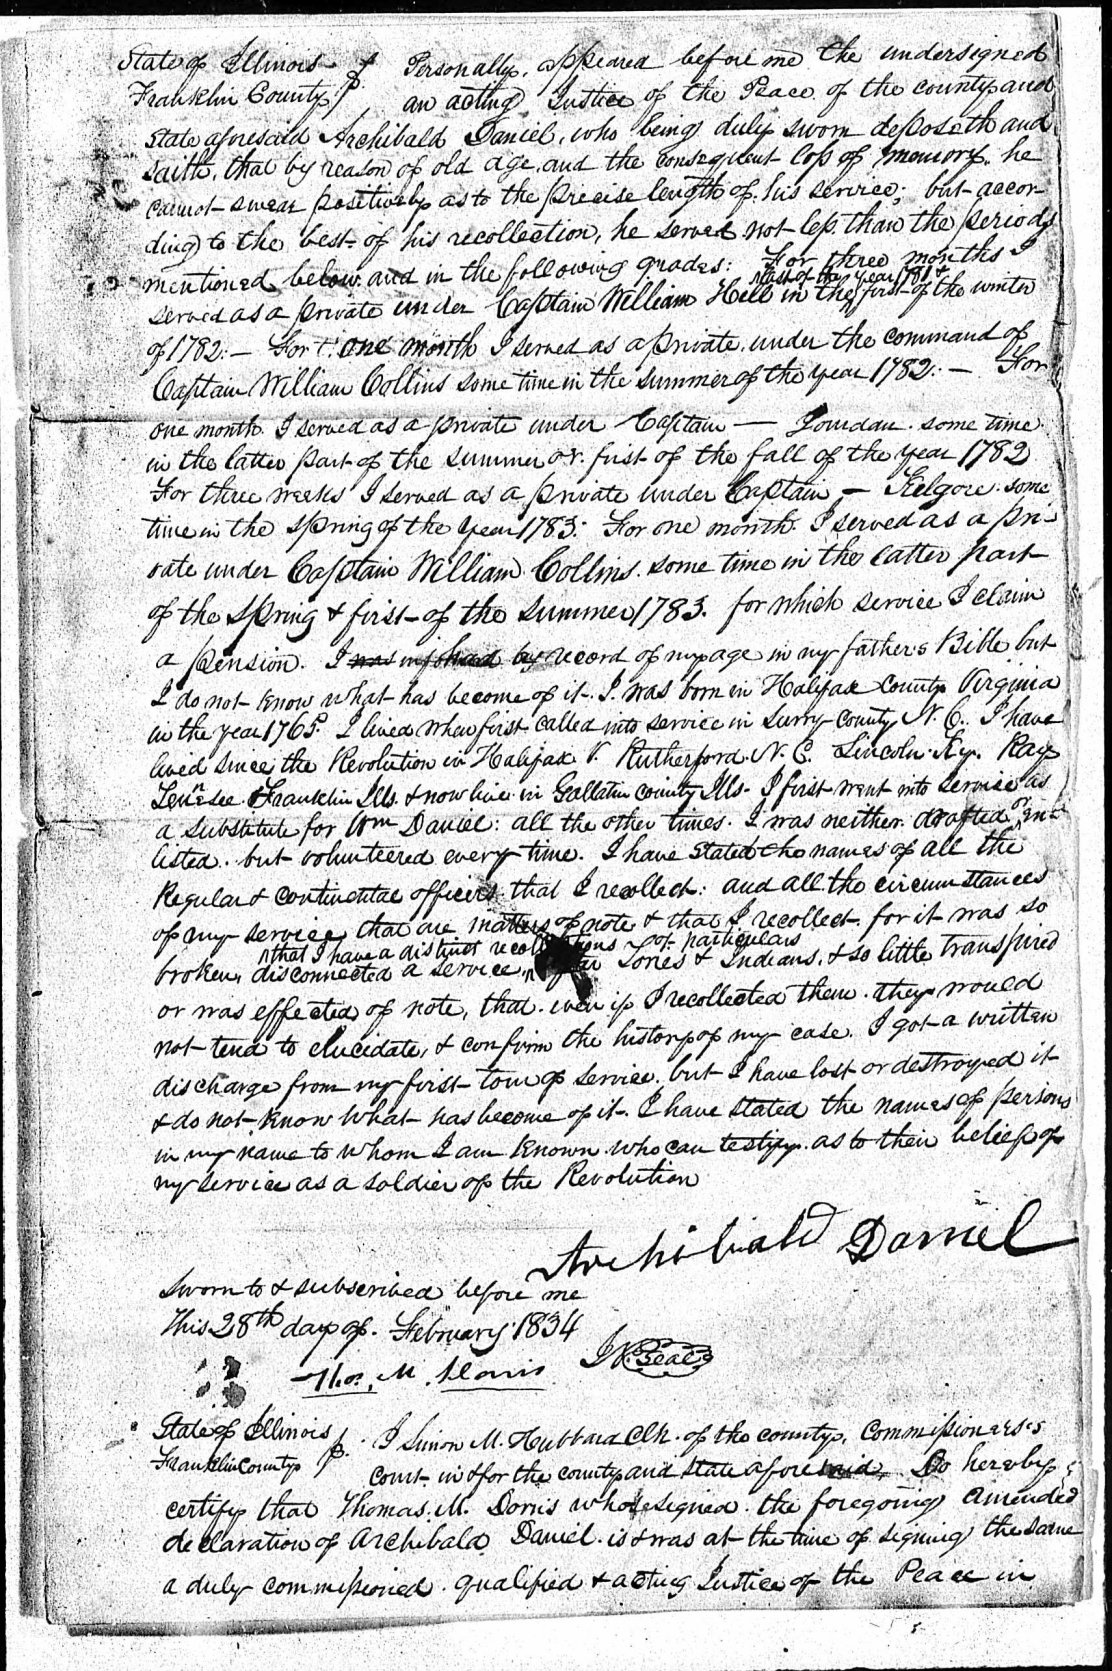 State of Illinois } Personally, appeared before me the undersigned
Franklin County } an acting Justice of the Peace of the county and
State aforesaid Archibald Daniel, who being duly sworn deposeth and
saith, that by reason of old age, and the consequent loss of memory, he
cannot swear positively as to the precise length of his service; but accor-
ding to the best of his recollection, he served not less than the periods
mentioned below and in the following grades: For three months I
served as a private under Captain William Hill in the last of the year 1781 & first of the winter
of 1782:— For one month I served as a private under the command of
Captain William Collins some time in the summer of the year 1782:— For
one month I served as a private under Captain — Jourdan some time
in the latter part of the summer or first of the fall of the year 1782
For three weeks I served as a private under Captain — Kelgore some
time in the spring of the year 1783: For one month I served as a pri-
vate under Captain William Collins some time in the latter part
of the spring & first of the summer 1783. for which service I claim
a pension. I was in had by record of my age in my father's Bible but
I do not know what has become of it. I was born in Halifax County Virginia
in the year 1765. I lived when first called into service in Surry County N. C. I have
lived since the Revolution in Halifax V. Rutherford N. C. Lincoln Ky. Ray
Tennesee Franklin Ills. & now live in Gallatin county Ills. I first went into service as
a substitute for Wm Daniel: all the other times I was neither drafted or en-
listed but volunteered every time. I have stated the names of all the
Regular & continental officers that I recollect: and all the circumstances
of my service that are matters of note & that I recollect for it was so
broken, disconnected a service, that I have a distinct recollections of particulars Tories & Indians, & so little transpired
or was effected of note, that even if I recollected them they would
not tend to elucidate, & confirm the history of my case. I got a written
discharge from my first tour of service, but I have lost or destroyed it
& do not know what has become of it. I have stated the names of persons
in my name to whom I am known who can testify as to their belief of
my service as a soldier of the Revolution
Archibald Daniel
Sworn to & subscribed before me
this 28th day of February 1834
Thos. M. Dorris J P. Seal
State of Illinois } I Simon M. Hubbard Clk. of the county, Commissioners's
Franklin County } court in & for the county and State aforesaid, Do hereby
certify that Thomas M. Dorris whose signed the foregoing amended
declaration of Archibald Daniel is & was at the time of signing the same
a duly commissioned qualified & acting Justice of the Peace in